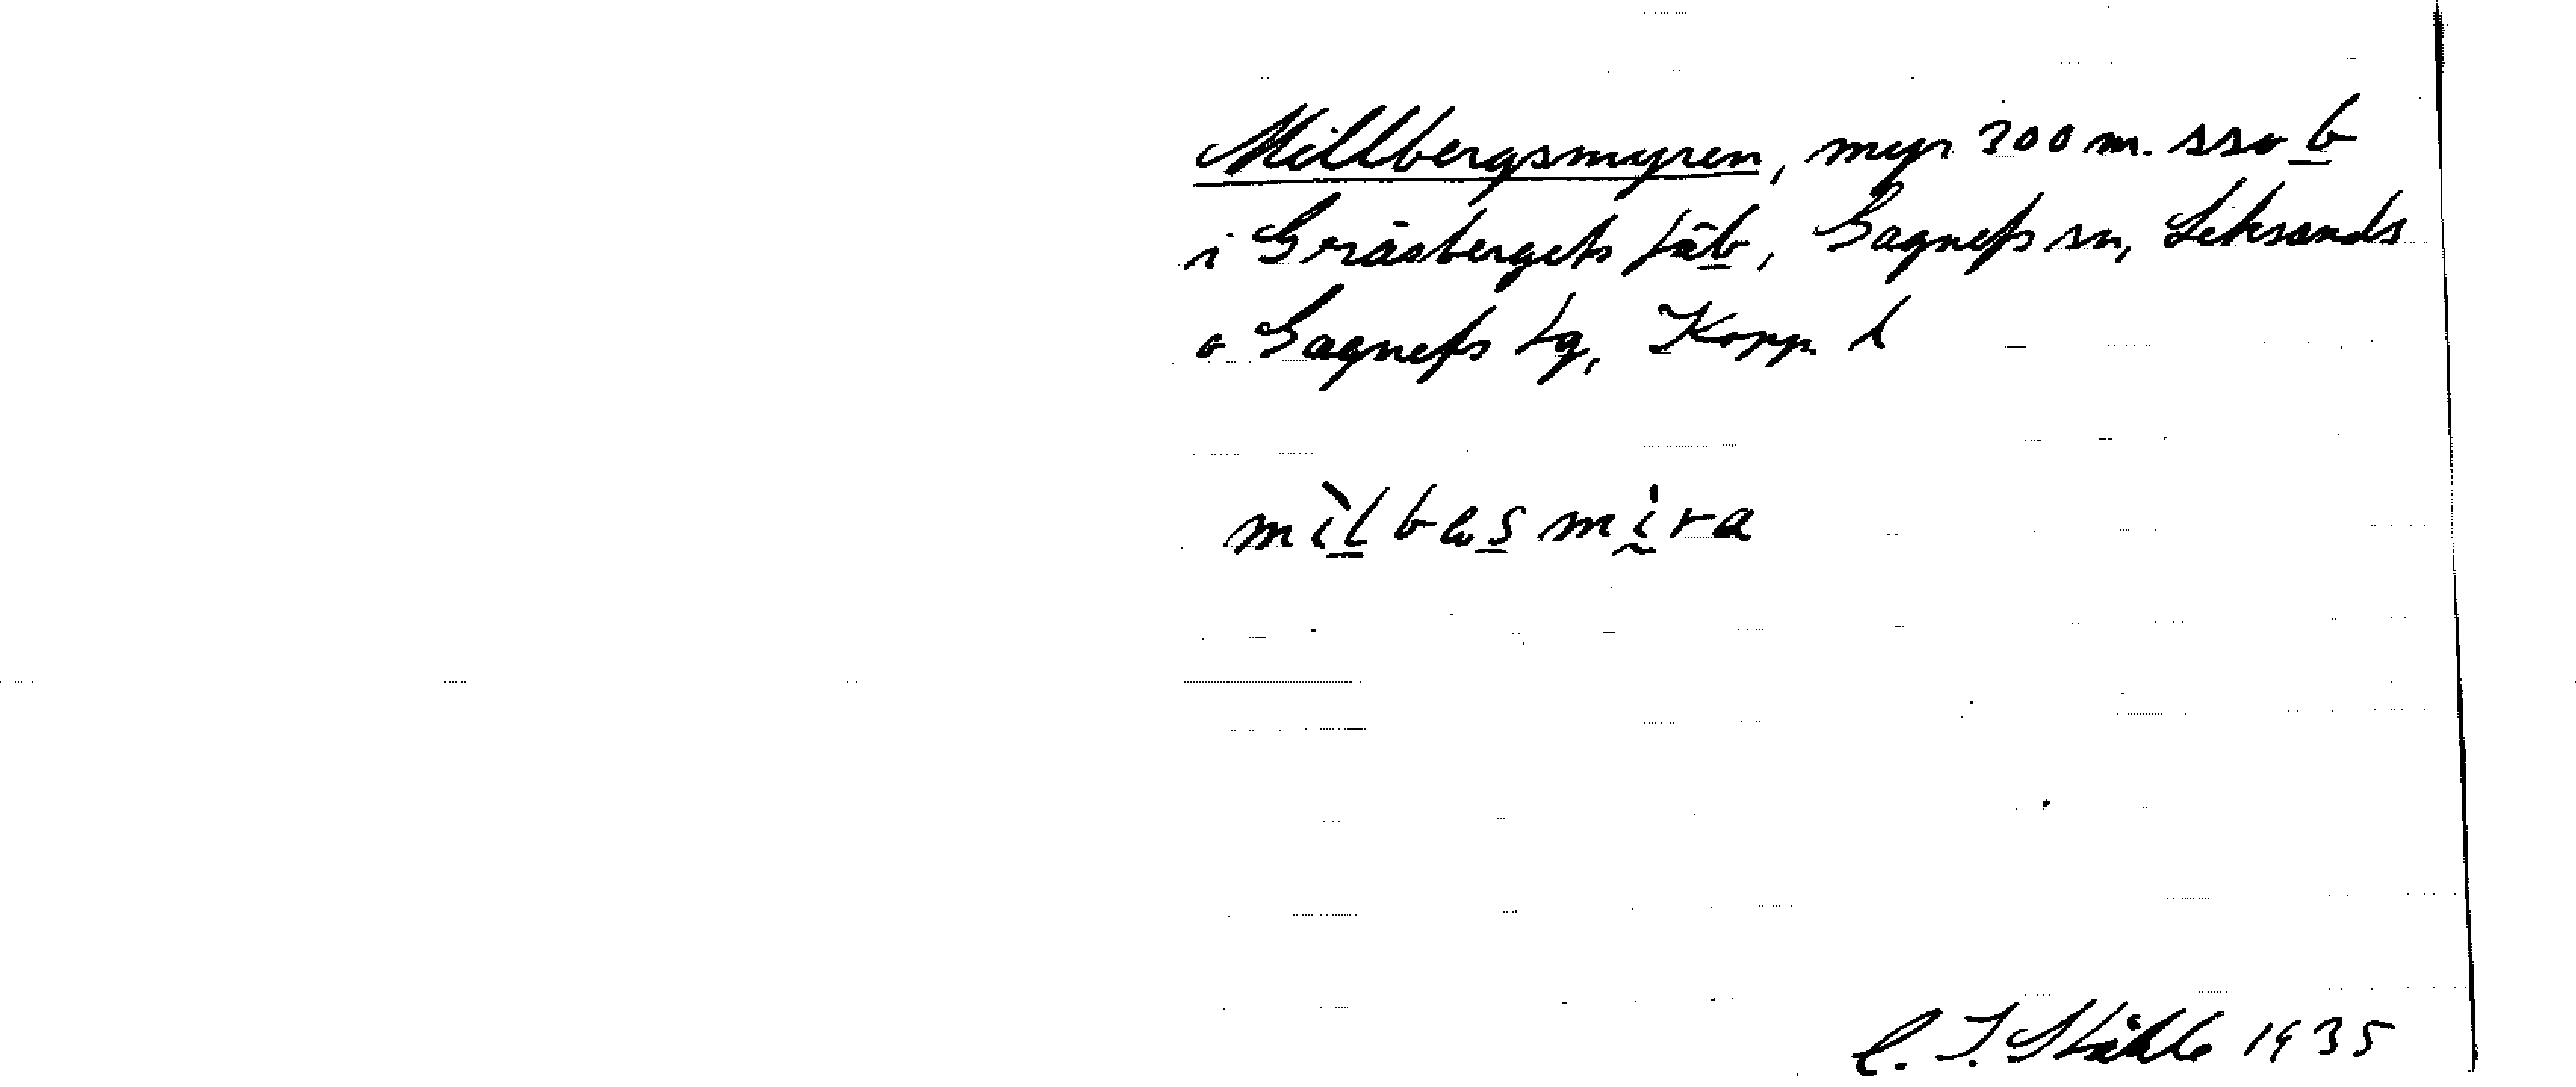 Millbergsmyren, myr 300 m. sso b
i Gräsbergets fäb, Gagnefs sn, Leksands
o Gagnefs tg, Kopp l
C. I. Ståhle 1935